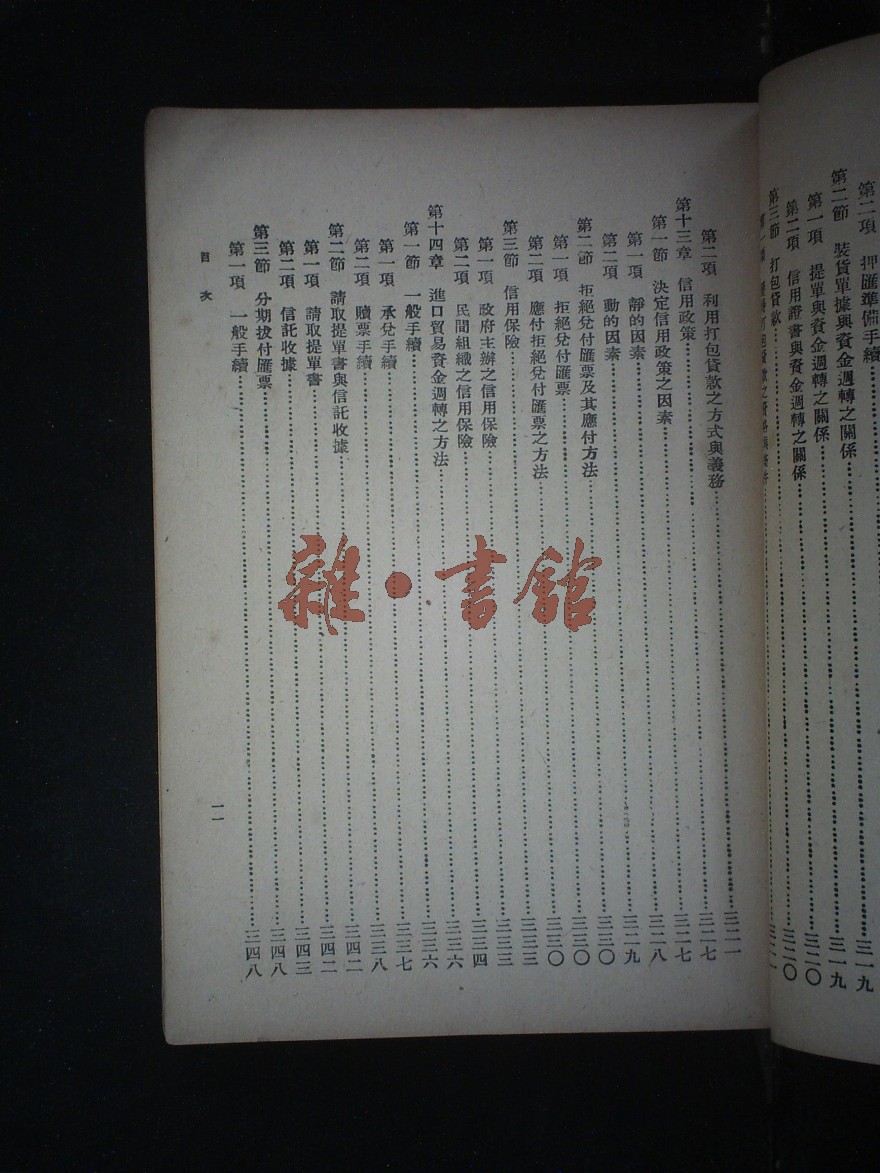 第二項 押匯準備手續……三一九
第二節 裝貨單據與資金週轉之關係……三一九
第一項 提單與資金週轉之關係……三二〇
第二項 信用證書與資金週轉之關係……三二〇
第三節 打包貸款……
第二項 利用打包貸款之方式與義務……三二一
第十三章 信用政策……三二七
第一節 決定信用政策之因素……三二七
第一項 靜的因素……三二八
第二項 動的因素……三二九
第二節 拒絕兌付匯票及其應付方法……三三〇
第一項 拒絕兌付匯票……三三〇
第二項 應付拒絕兌付匯票之方法……三三〇
第三節 信用保險……三三三
第一項 政府主辦之信用保險……三三三
第二項 民間組織之信用保險……三三四
第十四章 進口貿易資金週轉之方法……三三六
第一節 一般手續……三三六
第一項 承兌手續……三三七
第二項 贖票手續……三三八
第二節 請取提單書與信託收據……三四二
第一項 請取提單書……三四二
第二項 信託收據……三四三
第三節 分期拔付匯票……三四八
第一項 一般手續……三四八
目次
一一
雜·書館